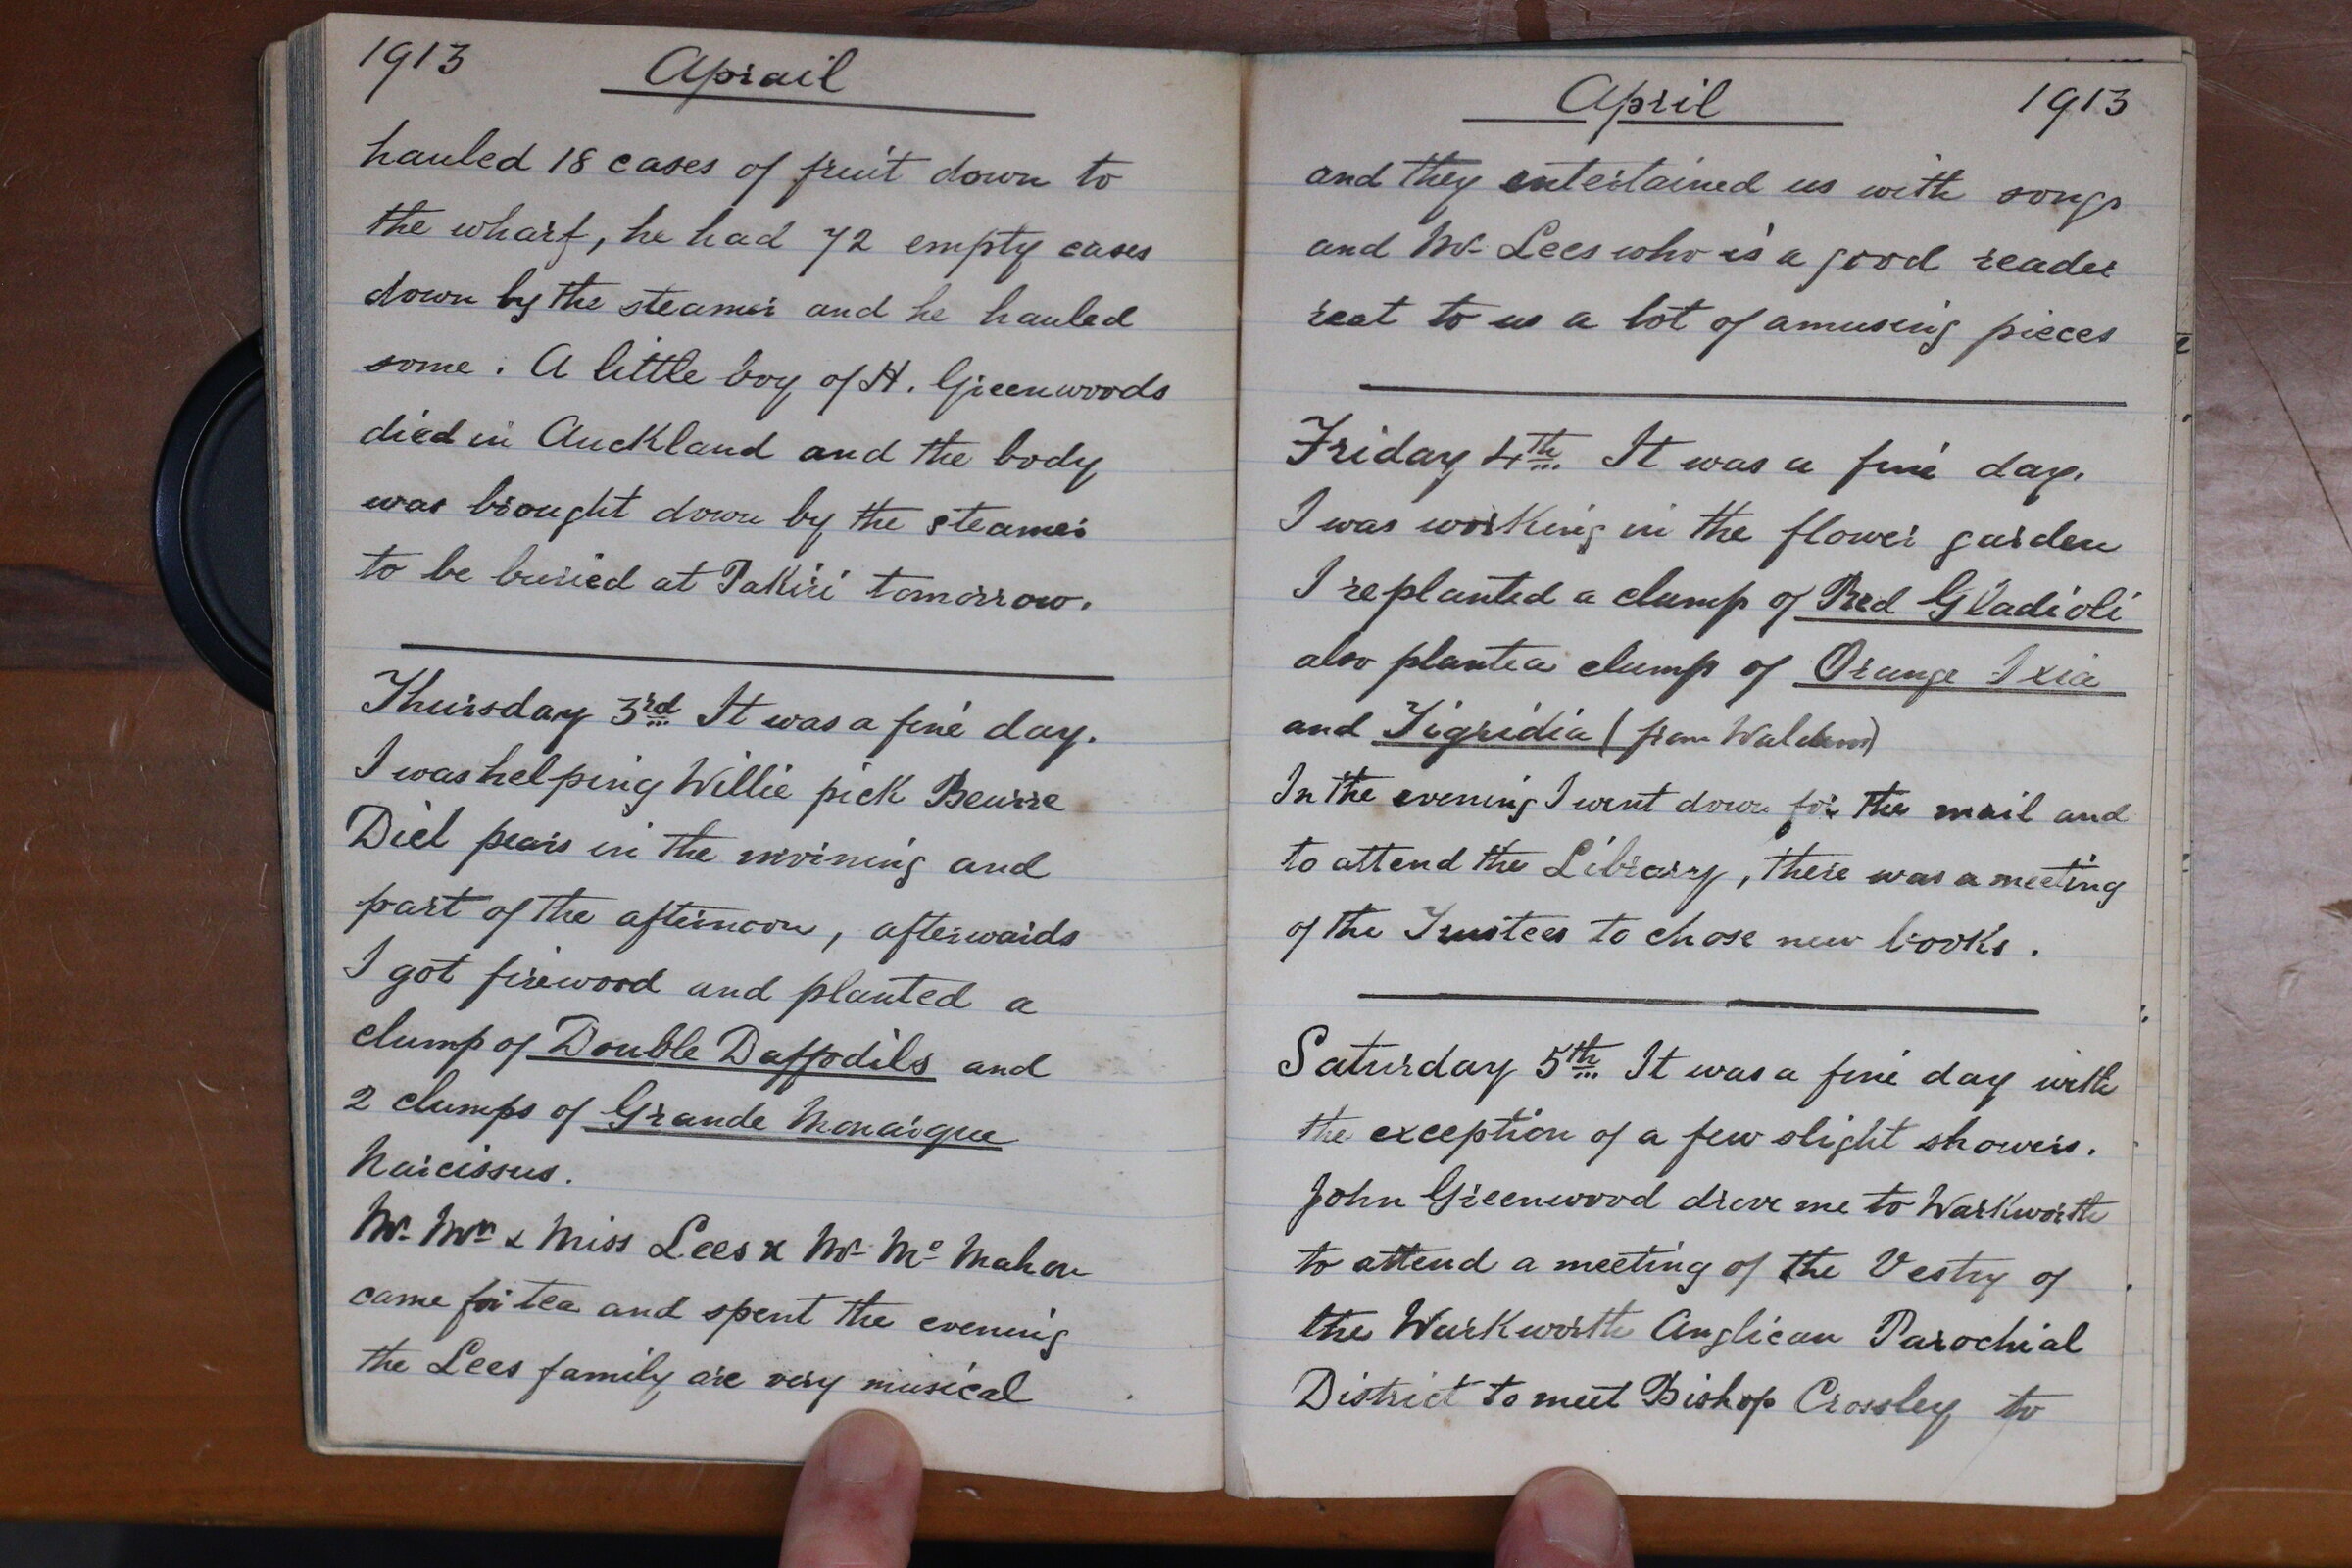 1913 Aprail
hauled 18 cases of fruit down to
the wharf, he had 72 empty cases
down by the steamer and he hauled
some. A little boy of H. Greenwoods
died in Auckland and the body
was brought down by the steamer
to be buried at Pakiri tomorrow.
Thursday 3rd It was a fine day.
I was helping Willie pick Beurre
Diel pears in the morning and
part of the afternoon, afterwards
I got firewood and planted a
clump of Double Daffodils and
2 clumps of Grande Monarque
Narcissus.
Mr Mrs & Miss Lees & Mr Mc Mahon
came for tea and spent the evening
the Lees family are very musical
April 1913
and they entertained us with songs
and Mr Lees who is a good reader
reat to us a lot of amusing pieces
Friday 4th It was a fine day.
I was working in the flower garden
I replanted a clump of Red Gladioli
also planted clump of Orange Ixia
and Tigridia (from
In the evening I went down for the mail and
to attend the Library, there was a meeting
of the Trustees to chose new books.
Saturday 5th It was a fine day with
the exception of a few slight showers.
John Greenwood drove me to Warkworth
to attend a meeting of the Vestry of
the Warkworth Anglican Parochial
District to meet Bishop Crossley to